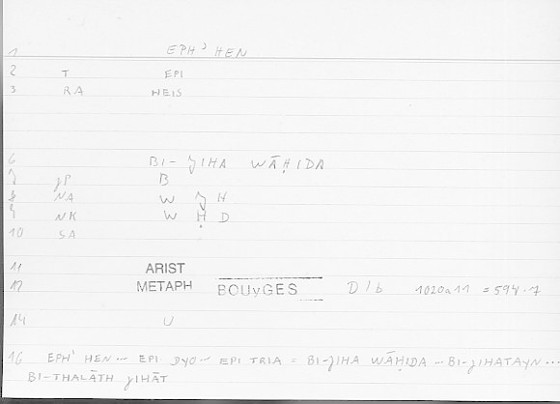 1 EPH' HEN
2 T EPI
3 RA HEIS
6 BI-JIHA WĀḤIDA
7 JP B
8 NA W J H
9 NK W Ḥ D
10 SA
11 ARIST
12 METAPH BOUYGES D/b 1020a11 = 594.7
14 U
16 EPH' HEN — EPI DYO — EPI TRIA = BI-JIHA WĀḤIDA — BI-JIHATAYN ...
BI-THALĀTH JIHĀT